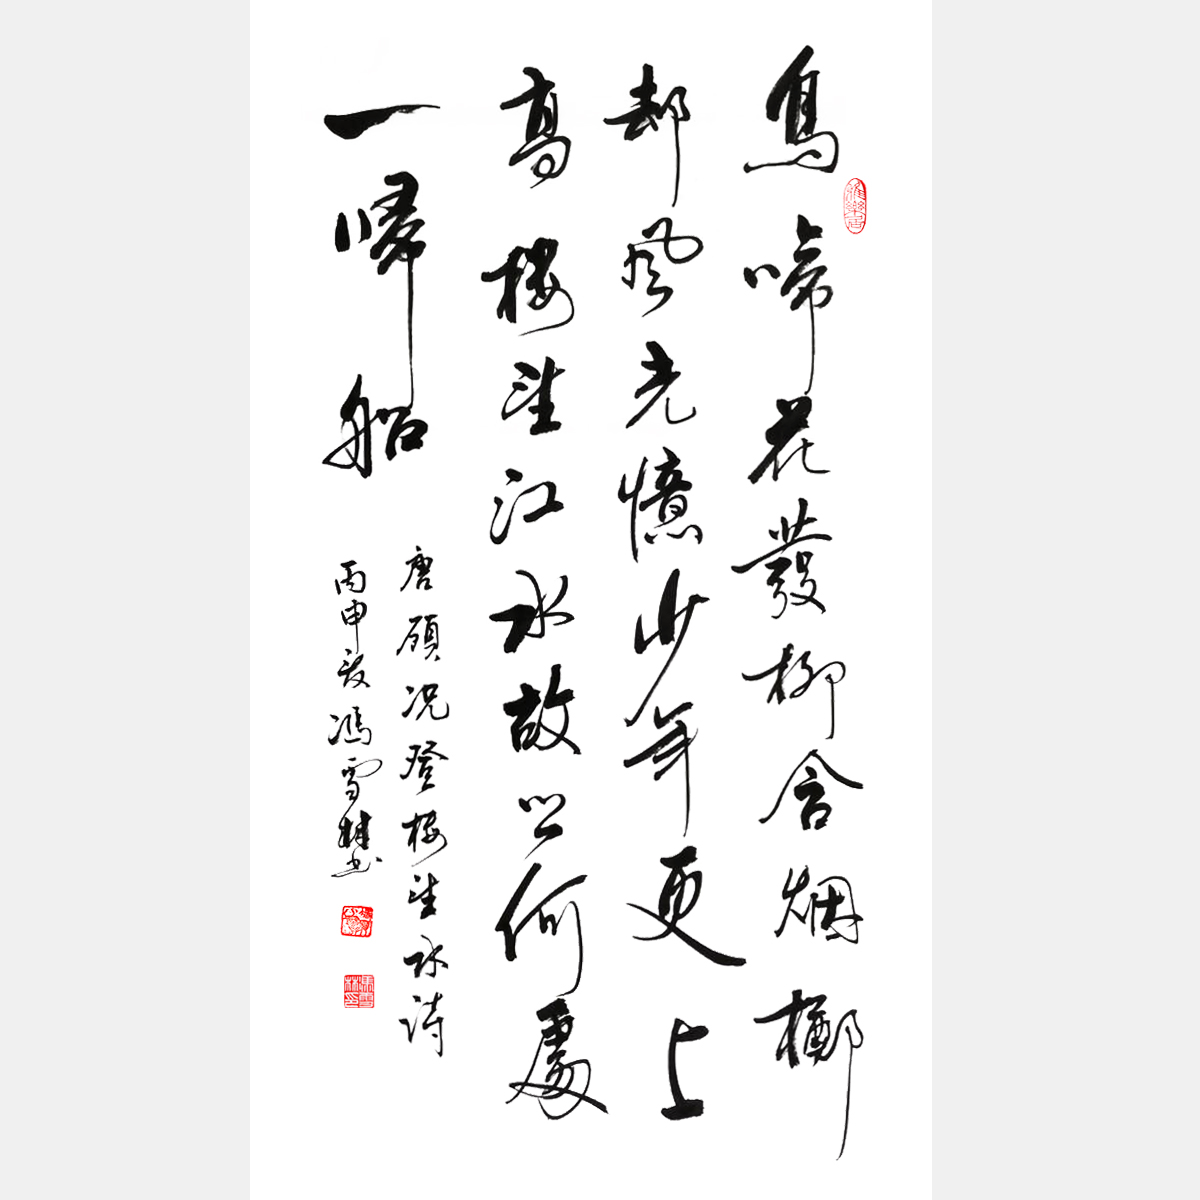 鳥啼花發柳含烟擲
却風光憶少年更上
高樓望江水故鄉何處
一歸船
唐顧況登樓望水詩
丙申夏馮雪林書